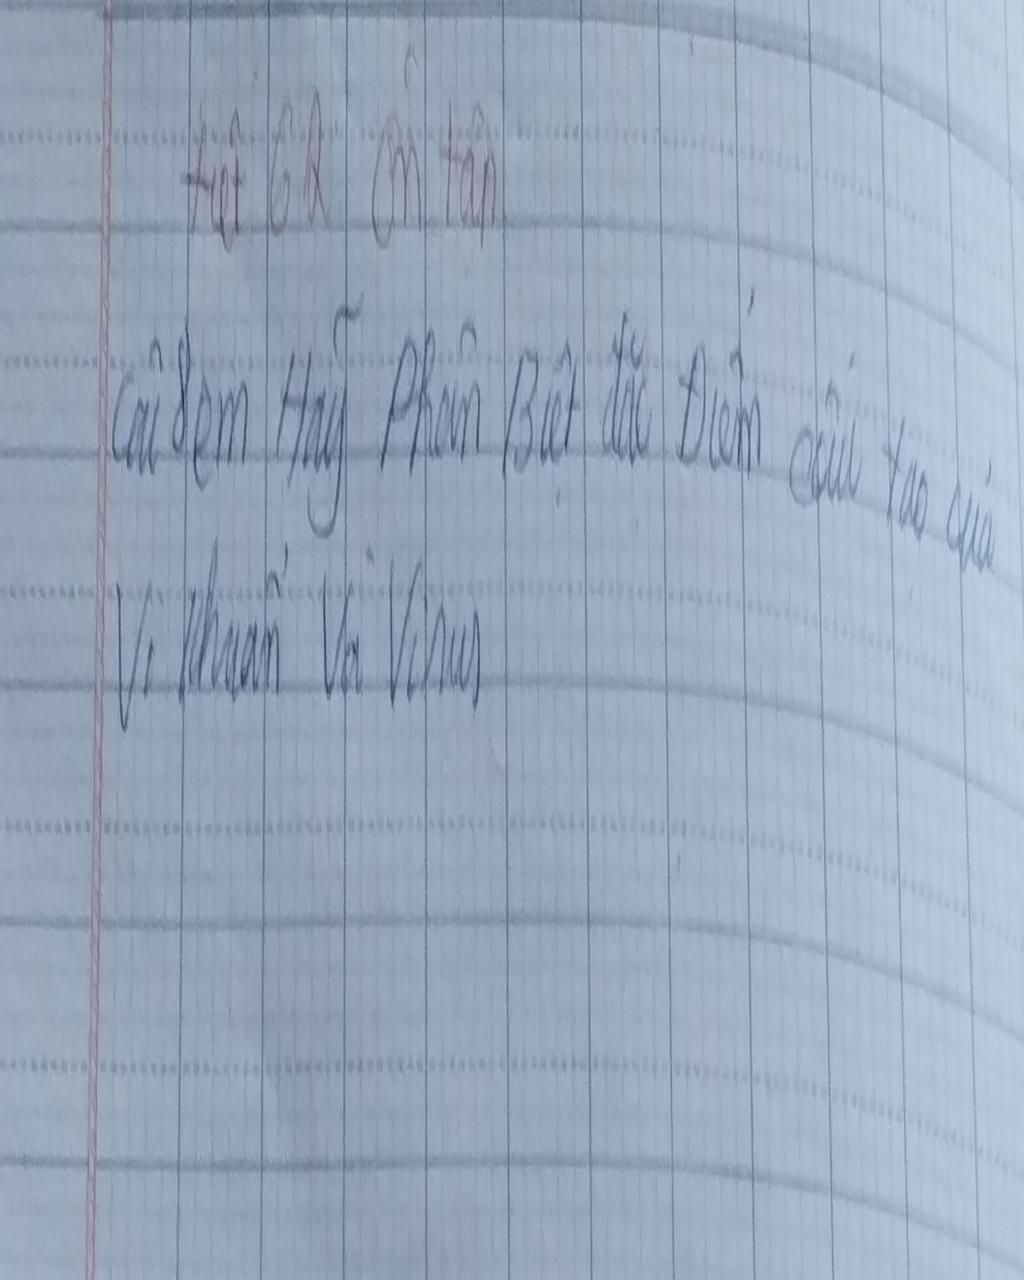 tiết 62 ôn tập
Câu 1 Em Hãy Phân Biệt đặc Điểm cấu tạo của
Vi khuẩn Và Virus